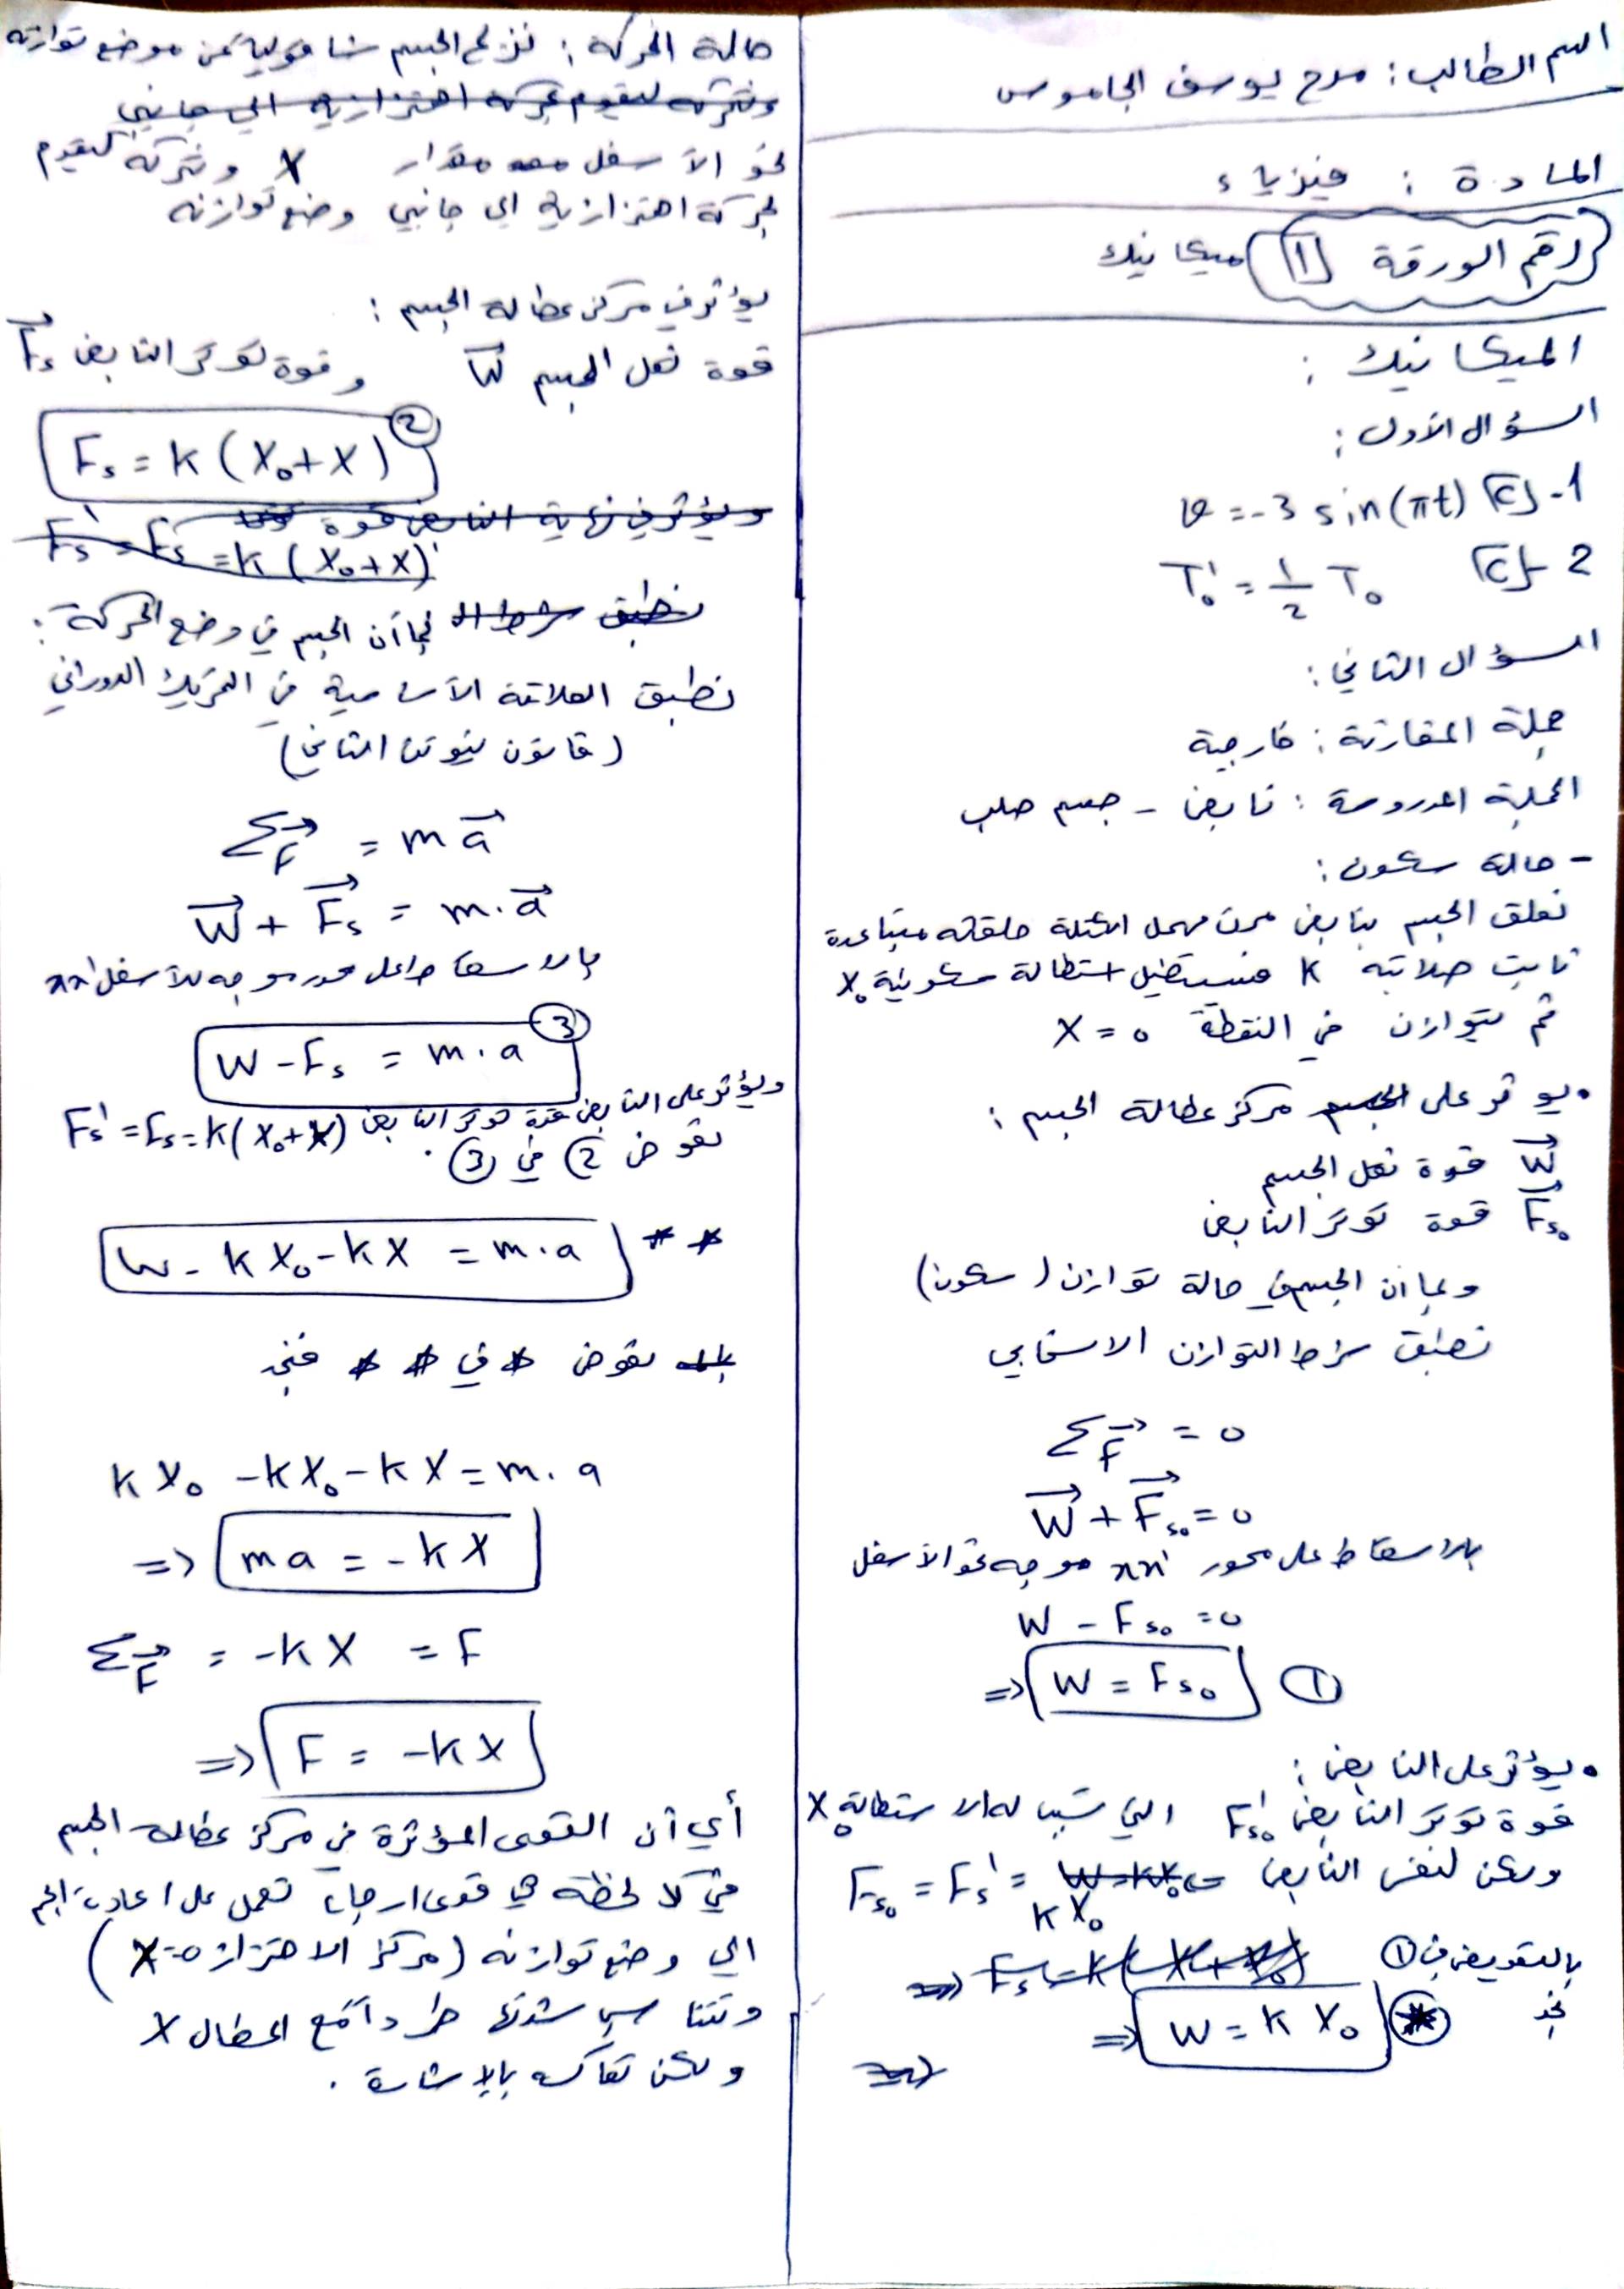 اسم الطالب : مرح يوسف الجاموس
المادة : فيزياء
رقم الورقة 1 ميكانيك
الميكانيك :
السؤال الأول :
1- C v = -3 sin(πt)
2- C T₀' = 1/2 T₀
السؤال الثاني :
جملة المقارنة : خارجية
الجملة المدروسة : نابض - جسم صلب
- حالة سكون :
نعلق الجسم بنابض مرن مهمل الكتلة حلقاته متباعدة
ثابت صلابته K فيستطيل استطالة سكونية X₀
ثم يتوازن في النقطة X = 0
• يوثر على مركز عطالة الجسم :
W⃗ قوة ثقل الجسم
F⃗s₀ قوة توتر النابض
وبما ان الجسم في حالة توازن ( سكون )
نطبق شرط التوازن الانسحابي
ΣF⃗ = 0
W⃗ + F⃗s₀ = 0
بالاسقاط على محور xx' موجه نحو الأسفل
W - Fs₀ = 0
⇒ W = Fs₀ ①
• يؤثر على النابض :
قوة توتر النابض F's₀ التي تسبب له الاستطالة X₀
ولكن لنفس النابض Fs₀ = Fs' = K X₀
بالتعويض في ①
نجد
⇒ W = K X₀ *
حالة الحركة : نزيح الجسم شاقولياً عن موضع توازنه
نحو الأسفل مقدار X ونتركه ليقوم
بحركة اهتزازية الى جانبي وضع توازنه
يؤثر في مركز عطالة الجسم :
قوة ثقل الجسم W⃗ و قوة توتر النابض F⃗s
Fs = K (X₀ + X) ②
بما أن الجسم في وضع الحركة :
نطبق العلاقة الأساسية في التحريك الدوراني
( قانون نيوتن الثاني )
ΣF⃗ = m a⃗
W⃗ + F⃗s = m . a⃗
بالاسقاط على محور موجه للأسفل xx'
W - Fs = m . a ③
ويؤثر على النابض قوة توتر النابض Fs' = Fs = K(X₀ + X)
نعوض ② في ③ .
W - K X₀ - K X = m . a **
نعوض * في * * فنجد
K X₀ - K X₀ - K X = m . a
⇒ m a = - K X
ΣF⃗ = - K X = F
⇒ F = - K X
أي أن القوى المؤثرة في مركز عطالة الجسم
في كل لحظة هي قوى ارجاع تعمل على اعادة الجسم
الى وضع توازنه ( مركز الاهتزاز X = 0 )
وتتناسب شدتها طرداً مع المطال X
ولكن تعاكسه بالإشارة .